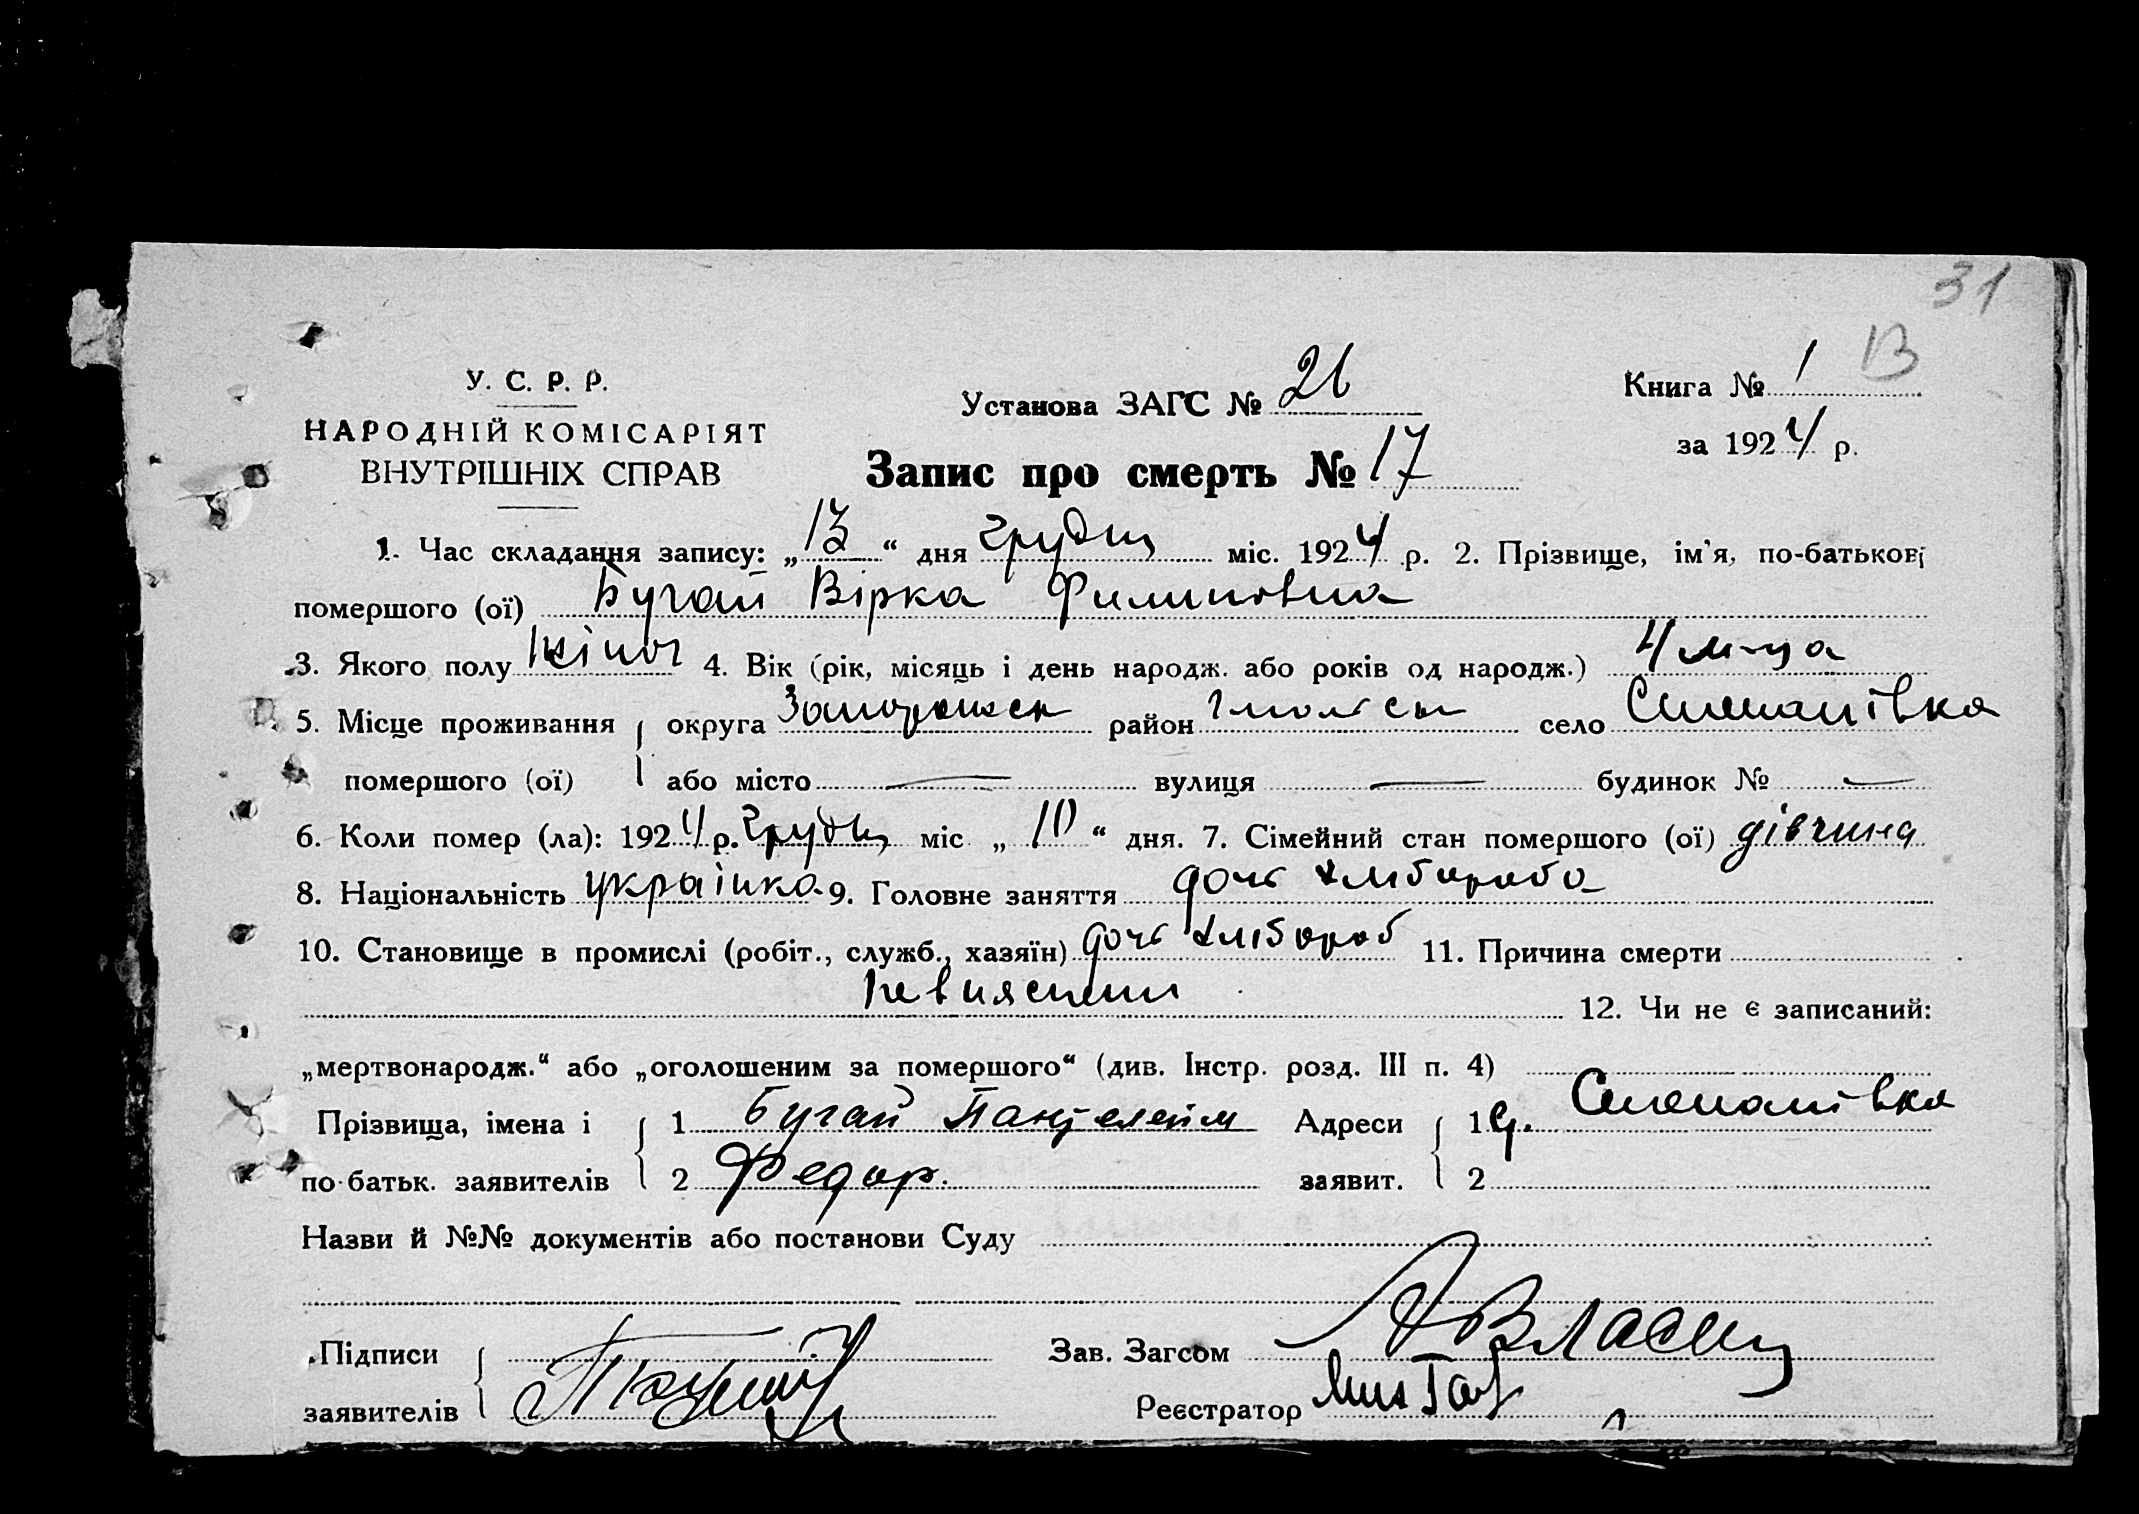 31
У. С. Р. Р.
Установа ЗАГС № 26
Книга № 1
13
НАРОДНІЙ КОМІСАРІЯТ
за 1924 р.
ВНУТРІШНІХ СПРАВ
Запис про смерть № 17
1. Час складання запису: „13“ дня грудня міс. 1924 р. 2. Прізвище, ім'я, по-батькові
помершого (ої) Бугай Вірка Филиповна
3. Якого полу жіноч 4. Вік (рік, місяць і день народж. або років од народж.) 4 м-ця
5. Місце проживання округа Запорожськ район село Степанівка
помершого (ої) або місто — вулиця — будинок № —
6. Коли помер (ла): 1924 р. грудня міс. „10“ дня. 7. Сімейний стан помершого (ої) дівчина
8. Національність украінка 9. Головне заняття дочь хлібороба
10. Становище в промислі (робіт., служб., хазяїн) дочь хлібороб 11. Причина смерти
12. Чи не є записаний:
„мертвонародж.“ або „оголошеним за померлого“ (див. Інстр. розд. III п. 4)
Прізвища, імена і 1 Бугай Пантелейм Адреси 1 с. Степанівка
по батьк. заявителів 2 Федор. заявит. 2
Назви й №№ документів або постанови Суду
Підписи
Зав. Загсом
заявителів
Реєстратор